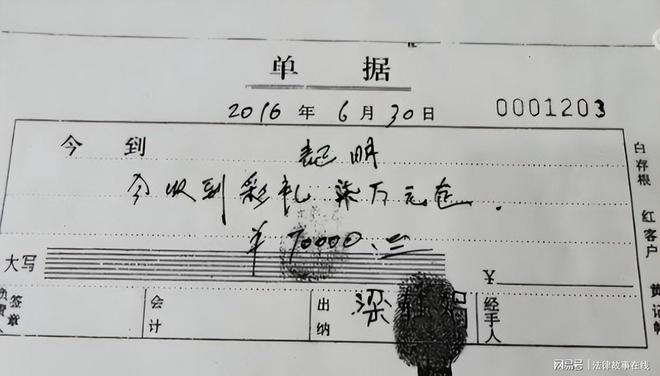 单 据
2016 年 6 月 30 日 0001203
今 到
证明
今收到彩礼柒万元整.
¥ 70000.
大写 ¥
签章 会计 出纳 梁 经手人
白存根 红客户
网易号 | 法律故事在线